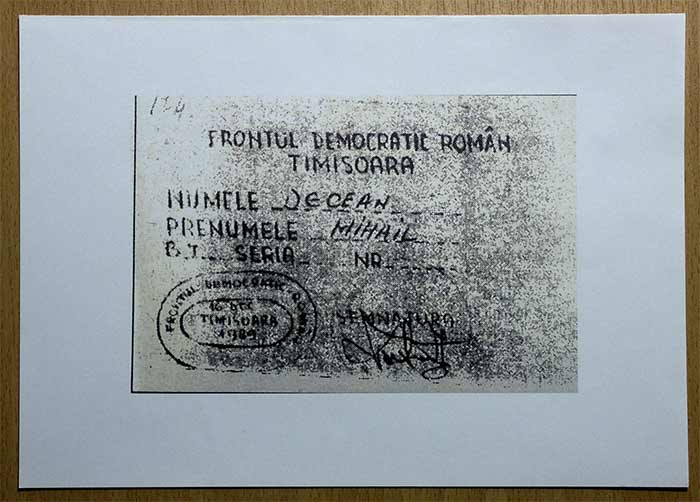 124
FRONTUL DEMOCRATIC ROMÂN
TIMISOARA
NUMELE DECEAN
PRENUMELE MIHAIL
B.I. SERIA NR.
FRONTUL DEMOCRATIC ROMÂN
16 DEC
TIMISOARA
1989
SEMNATURA